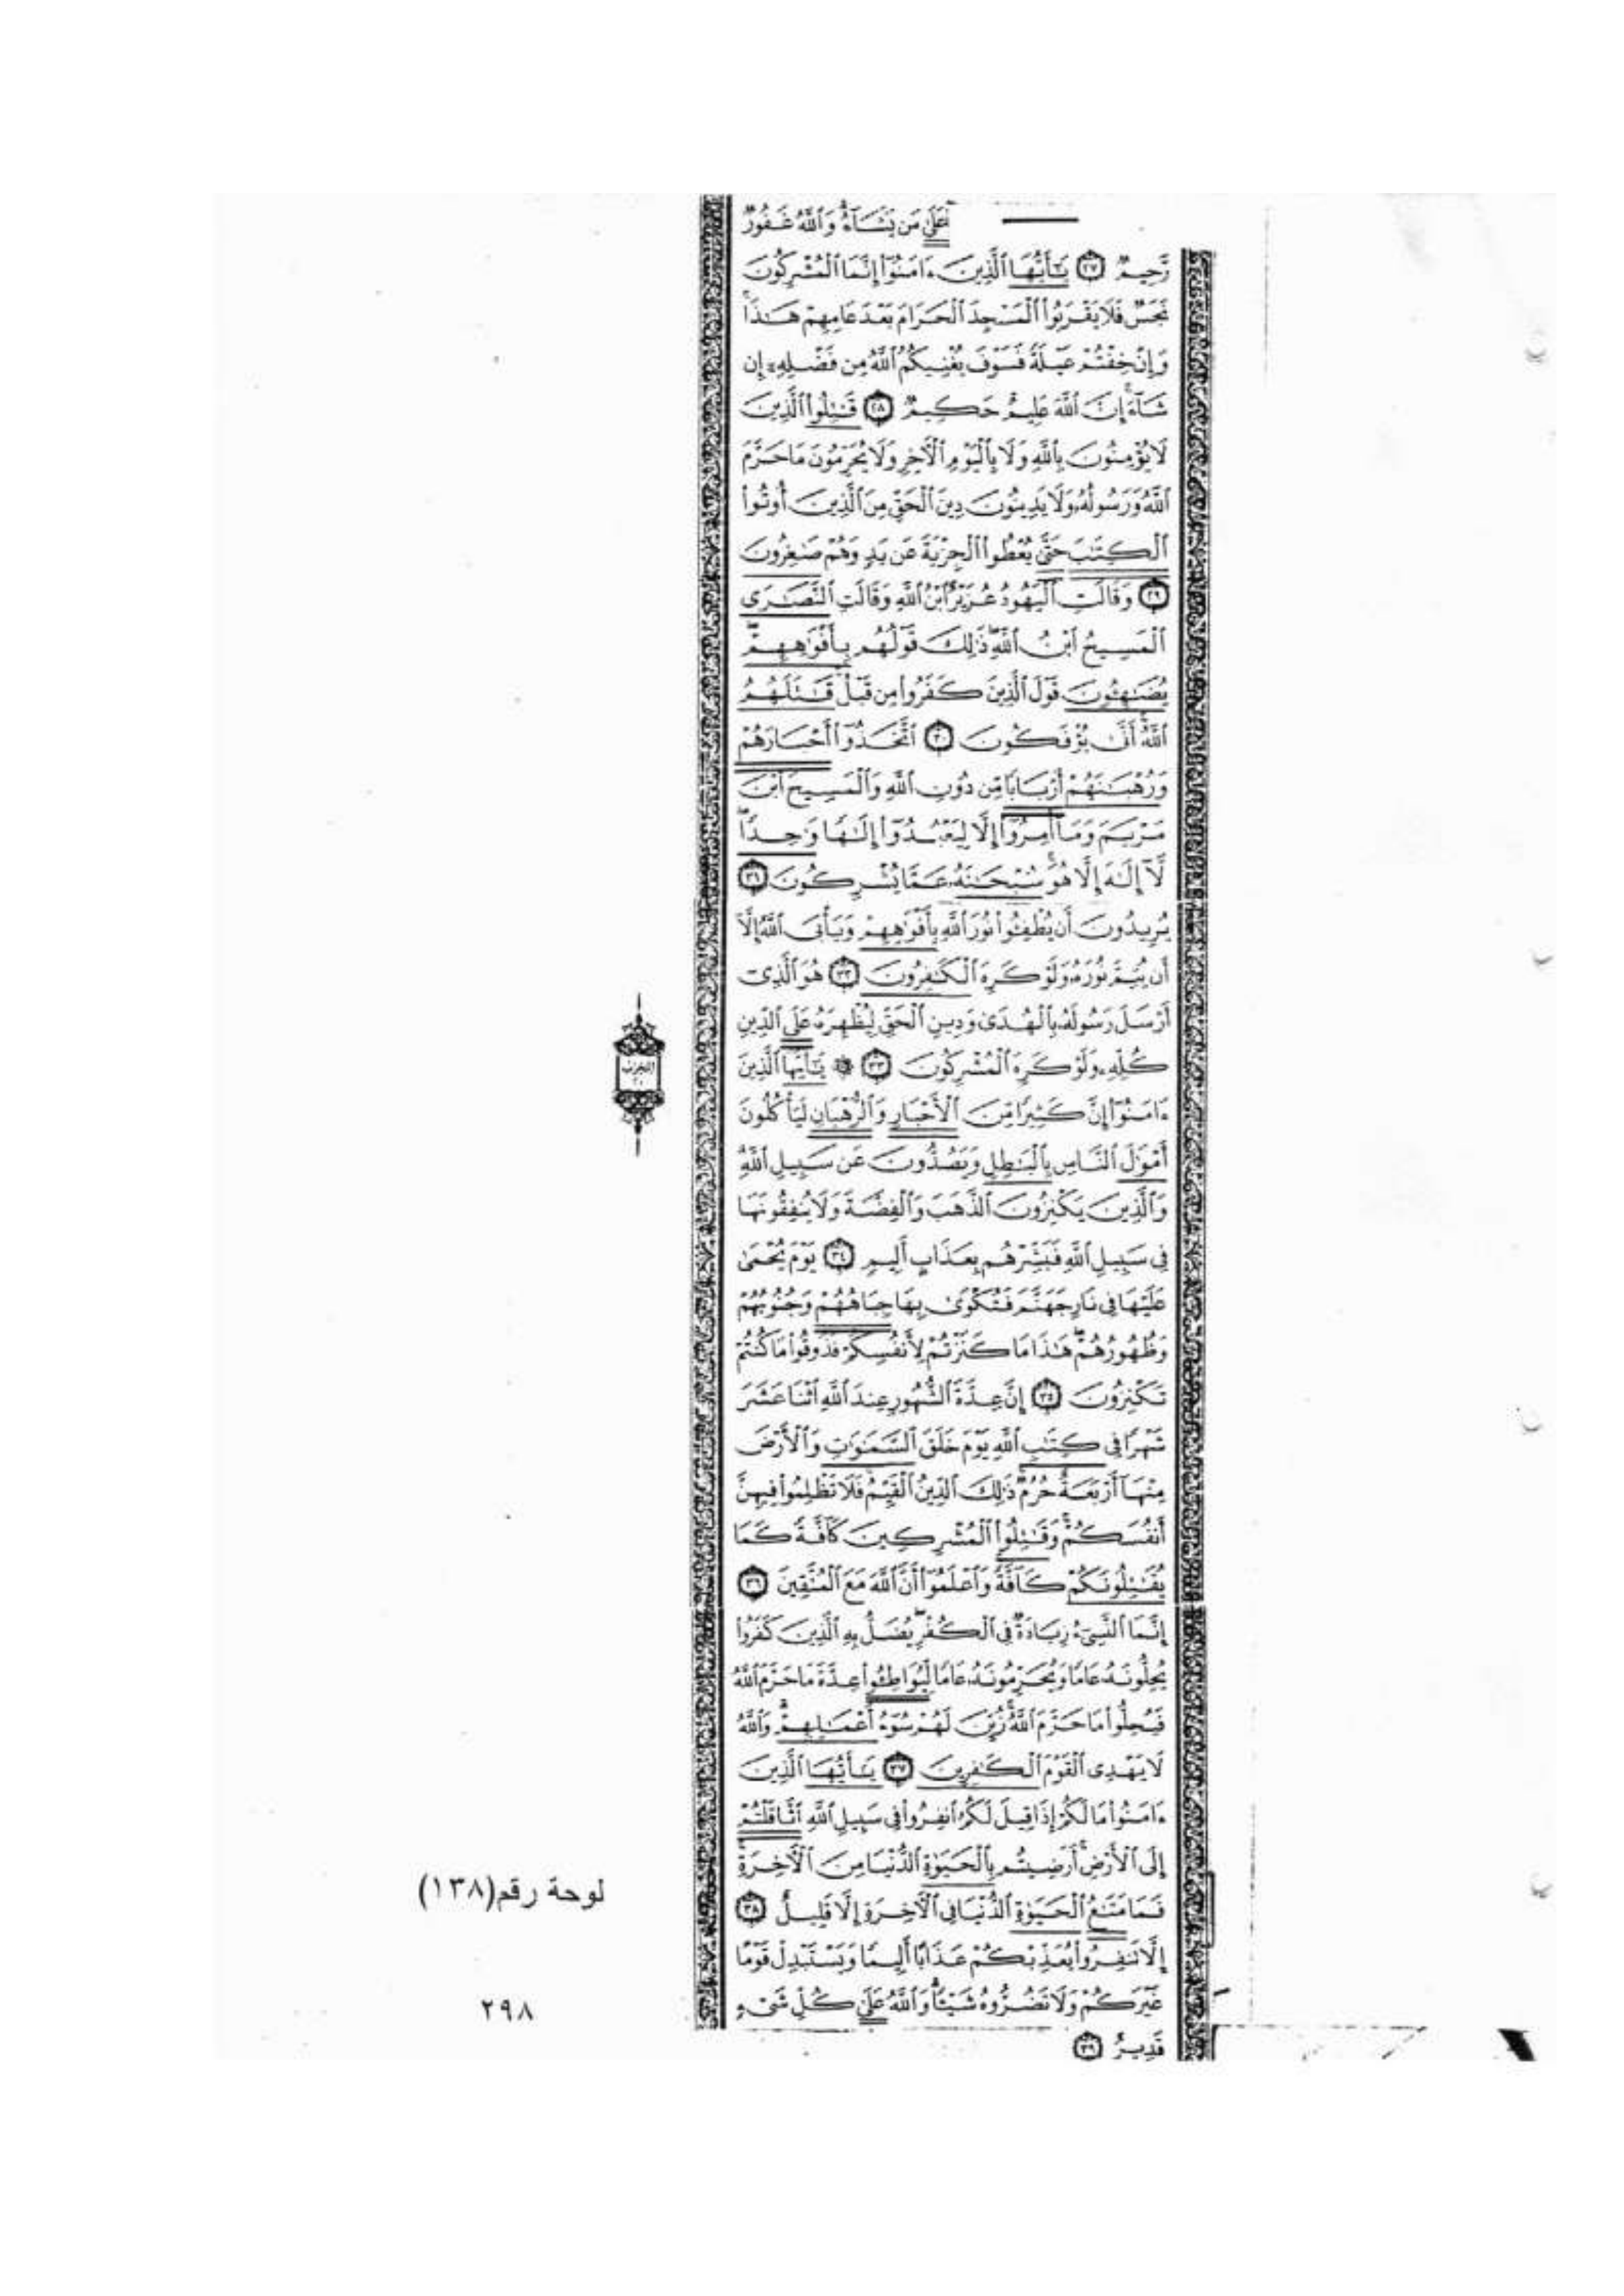 عَلَىٰ مَن يَشَآءُ وَٱللَّهُ غَفُورٌ
رَّحِيمٌ ٢٧ يَٰٓأَيُّهَا ٱلَّذِينَ ءَامَنُوٓا۟ إِنَّمَا ٱلْمُشْرِكُونَ
نَجَسٌ فَلَا يَقْرَبُوا۟ ٱلْمَسْجِدَ ٱلْحَرَامَ بَعْدَ عَامِهِمْ هَٰذَا
وَإِنْ خِفْتُمْ عَيْلَةً فَسَوْفَ يُغْنِيكُمُ ٱللَّهُ مِن فَضْلِهِۦٓ إِن
شَآءَ إِنَّ ٱللَّهَ عَلِيمٌ حَكِيمٌ ٢٨ قَٰتِلُوا۟ ٱلَّذِينَ
لَا يُؤْمِنُونَ بِٱللَّهِ وَلَا بِٱلْيَوْمِ ٱلْءَاخِرِ وَلَا يُحَرِّمُونَ مَا حَرَّمَ
ٱللَّهُ وَرَسُولُهُۥ وَلَا يَدِينُونَ دِينَ ٱلْحَقِّ مِنَ ٱلَّذِينَ أُوتُوا۟
ٱلْكِتَٰبَ حَتَّىٰ يُعْطُوا۟ ٱلْجِزْيَةَ عَن يَدٍ وَهُمْ صَٰغِرُونَ
٢٩ وَقَالَتِ ٱلْيَهُودُ عُزَيْرٌ ٱبْنُ ٱللَّهِ وَقَالَتِ ٱلنَّصَٰرَى
ٱلْمَسِيحُ ٱبْنُ ٱللَّهِ ذَٰلِكَ قَوْلُهُم بِأَفْوَٰهِهِمْ
يُضَٰهِـُٔونَ قَوْلَ ٱلَّذِينَ كَفَرُوا۟ مِن قَبْلُ قَٰتَلَهُمُ
ٱللَّهُ أَنَّىٰ يُؤْفَكُونَ ٣٠ ٱتَّخَذُوٓا۟ أَحْبَارَهُمْ
وَرُهْبَٰنَهُمْ أَرْبَابًا مِّن دُونِ ٱللَّهِ وَٱلْمَسِيحَ ٱبْنَ
مَرْيَمَ وَمَآ أُمِرُوٓا۟ إِلَّا لِيَعْبُدُوٓا۟ إِلَٰهًا وَٰحِدًا
لَّآ إِلَٰهَ إِلَّا هُوَ سُبْحَٰنَهُۥ عَمَّا يُشْرِكُونَ ٣١
يُرِيدُونَ أَن يُطْفِـُٔوا۟ نُورَ ٱللَّهِ بِأَفْوَٰهِهِمْ وَيَأْبَى ٱللَّهُ إِلَّآ
أَن يُتِمَّ نُورَهُۥ وَلَوْ كَرِهَ ٱلْكَٰفِرُونَ ٣٢ هُوَ ٱلَّذِىٓ
أَرْسَلَ رَسُولَهُۥ بِٱلْهُدَىٰ وَدِينِ ٱلْحَقِّ لِيُظْهِرَهُۥ عَلَى ٱلدِّينِ
كُلِّهِۦ وَلَوْ كَرِهَ ٱلْمُشْرِكُونَ ٣٣ ۞ يَٰٓأَيُّهَا ٱلَّذِينَ
ءَامَنُوٓا۟ إِنَّ كَثِيرًا مِّنَ ٱلْأَحْبَارِ وَٱلرُّهْبَانِ لَيَأْكُلُونَ
أَمْوَٰلَ ٱلنَّاسِ بِٱلْبَٰطِلِ وَيَصُدُّونَ عَن سَبِيلِ ٱللَّهِ
وَٱلَّذِينَ يَكْنِزُونَ ٱلذَّهَبَ وَٱلْفِضَّةَ وَلَا يُنفِقُونَهَا
فِى سَبِيلِ ٱللَّهِ فَبَشِّرْهُم بِعَذَابٍ أَلِيمٍ ٣٤ يَوْمَ يُحْمَىٰ
عَلَيْهَا فِى نَارِ جَهَنَّمَ فَتُكْوَىٰ بِهَا جِبَاهُهُمْ وَجُنُوبُهُمْ
وَظُهُورُهُمْ هَٰذَا مَا كَنَزْتُمْ لِأَنفُسِكُمْ فَذُوقُوا۟ مَا كُنتُمْ
تَكْنِزُونَ ٣٥ إِنَّ عِدَّةَ ٱلشُّهُورِ عِندَ ٱللَّهِ ٱثْنَا عَشَرَ
شَهْرًا فِى كِتَٰبِ ٱللَّهِ يَوْمَ خَلَقَ ٱلسَّمَٰوَٰتِ وَٱلْأَرْضَ
مِنْهَآ أَرْبَعَةٌ حُرُمٌ ذَٰلِكَ ٱلدِّينُ ٱلْقَيِّمُ فَلَا تَظْلِمُوا۟ فِيهِنَّ
أَنفُسَكُمْ وَقَٰتِلُوا۟ ٱلْمُشْرِكِينَ كَآفَّةً كَمَا
يُقَٰتِلُونَكُمْ كَآفَّةً وَٱعْلَمُوٓا۟ أَنَّ ٱللَّهَ مَعَ ٱلْمُتَّقِينَ ٣٦
إِنَّمَا ٱلنَّسِىٓءُ زِيَادَةٌ فِى ٱلْكُفْرِ يُضَلُّ بِهِ ٱلَّذِينَ كَفَرُوا۟
يُحِلُّونَهُۥ عَامًا وَيُحَرِّمُونَهُۥ عَامًا لِّيُوَاطِـُٔوا۟ عِدَّةَ مَا حَرَّمَ ٱللَّهُ
فَيُحِلُّوا۟ مَا حَرَّمَ ٱللَّهُ زُيِّنَ لَهُمْ سُوٓءُ أَعْمَٰلِهِمْ وَٱللَّهُ
لَا يَهْدِى ٱلْقَوْمَ ٱلْكَٰفِرِينَ ٣٧ يَٰٓأَيُّهَا ٱلَّذِينَ
ءَامَنُوا۟ مَا لَكُمْ إِذَا قِيلَ لَكُمُ ٱنفِرُوا۟ فِى سَبِيلِ ٱللَّهِ ٱثَّاقَلْتُمْ
إِلَى ٱلْأَرْضِ أَرَضِيتُم بِٱلْحَيَوٰةِ ٱلدُّنْيَا مِنَ ٱلْءَاخِرَةِ
فَمَا مَتَٰعُ ٱلْحَيَوٰةِ ٱلدُّنْيَا فِى ٱلْءَاخِرَةِ إِلَّا قَلِيلٌ ٣٨
إِلَّا تَنفِرُوا۟ يُعَذِّبْكُمْ عَذَابًا أَلِيمًا وَيَسْتَبْدِلْ قَوْمًا
غَيْرَكُمْ وَلَا تَضُرُّوهُ شَيْـًٔا وَٱللَّهُ عَلَىٰ كُلِّ شَىْءٍ
قَدِيرٌ ٣٩
لوحة رقم(١٣٨)
٢٩٨